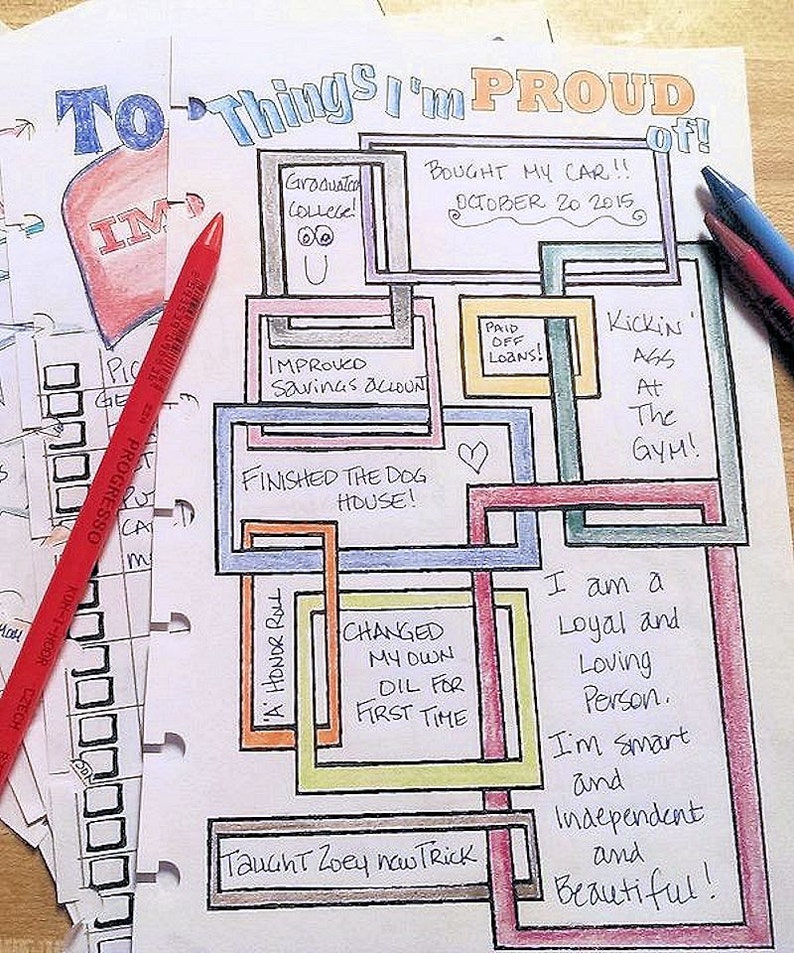 To
IM
Things I'm PROUD
of!
Graduated
College!
BOUGHT MY CAR!!
OCTOBER 20 2015
IMPROVED
savings account
PAID
OFF
LOANS!
Kickin'
Ass
At
The
Gym!
FINISHED THE DOG
HOUSE!
'A' HONOR ROLL
CHANGED
MY OWN
OIL FOR
FIRST TIME
I am a
Loyal and
Loving
Person.
I'm smart
and
Independent
and
Beautiful!
Taught Zoey new Trick
PROGRESSO
KOH-I-NOOR
CZECH